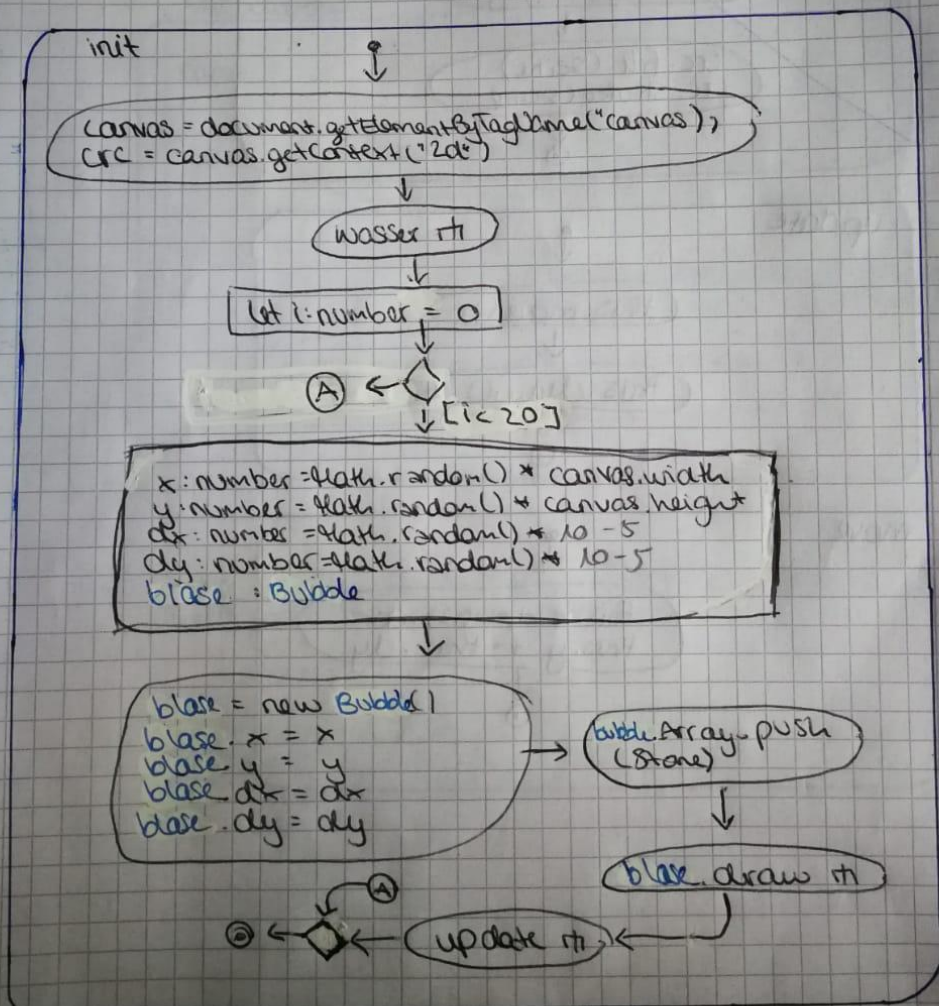 init
canvas = document.getElementByTagName("canvas);
crc = canvas.getContext("2d")
wasser
let i:number = 0
A
[i< 20]
x: number = Math.random() * canvas.width
y: number = Math.random() * canvas.height
dx: number = Math.random() * 10 - 5
dy: number = Math.random() * 10-5
blase : Bubble
blase = new Bubble()
blase. x = x
blase. y = y
blase. dx = dx
blase. dy = dy
bubble.Array.push
(Stone)
blase. draw
A
update